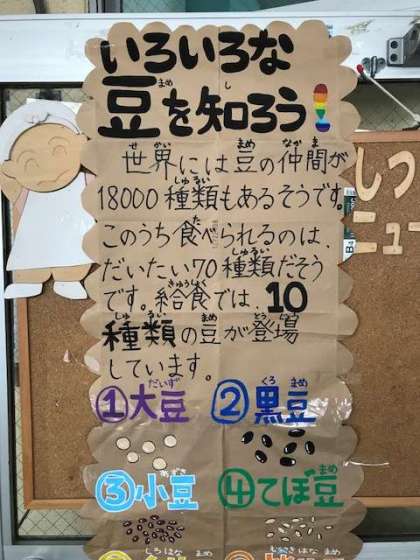 いろいろな
豆を知ろう!
世界には豆の仲間が
18000種類もあるそうです。
このうち食べられるのは、
だいたい70種類だそう
です。給食では、10
種類の豆が登場
しています。
①大豆 ②黒豆
③小豆 ④てぼ豆
しつ
ニュー